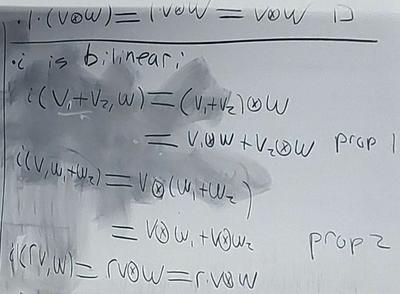 ·1·(v⊗w)=1·v⊗w=v⊗w □
·i is bilinear:
i(v₁+v₂,w)=(v₁+v₂)⊗w
=v₁⊗w+v₂⊗w prop 1
i(v,w₁+w₂)=v⊗(w₁+w₂)
=v⊗w₁+v⊗w₂ prop 2
i(rv,w)=rv⊗w=r·v⊗w